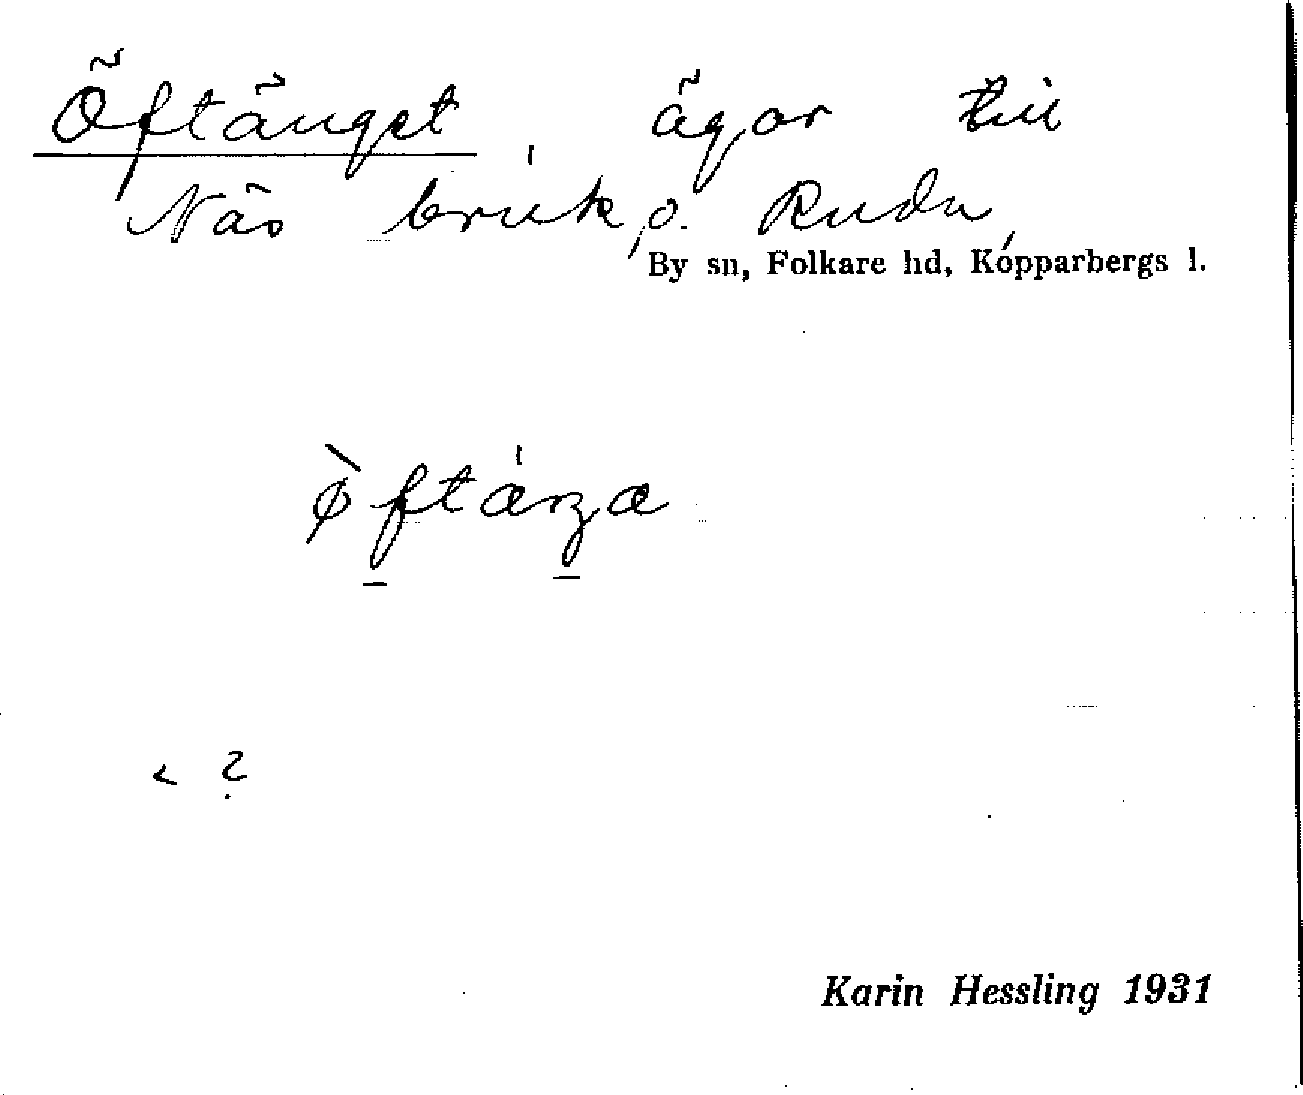 Öftänget, ägor till
Näs bruk, o. Rudu,
By sn, Folkare hd, Kopparbergs l.
< ?
Karin Hessling 1931